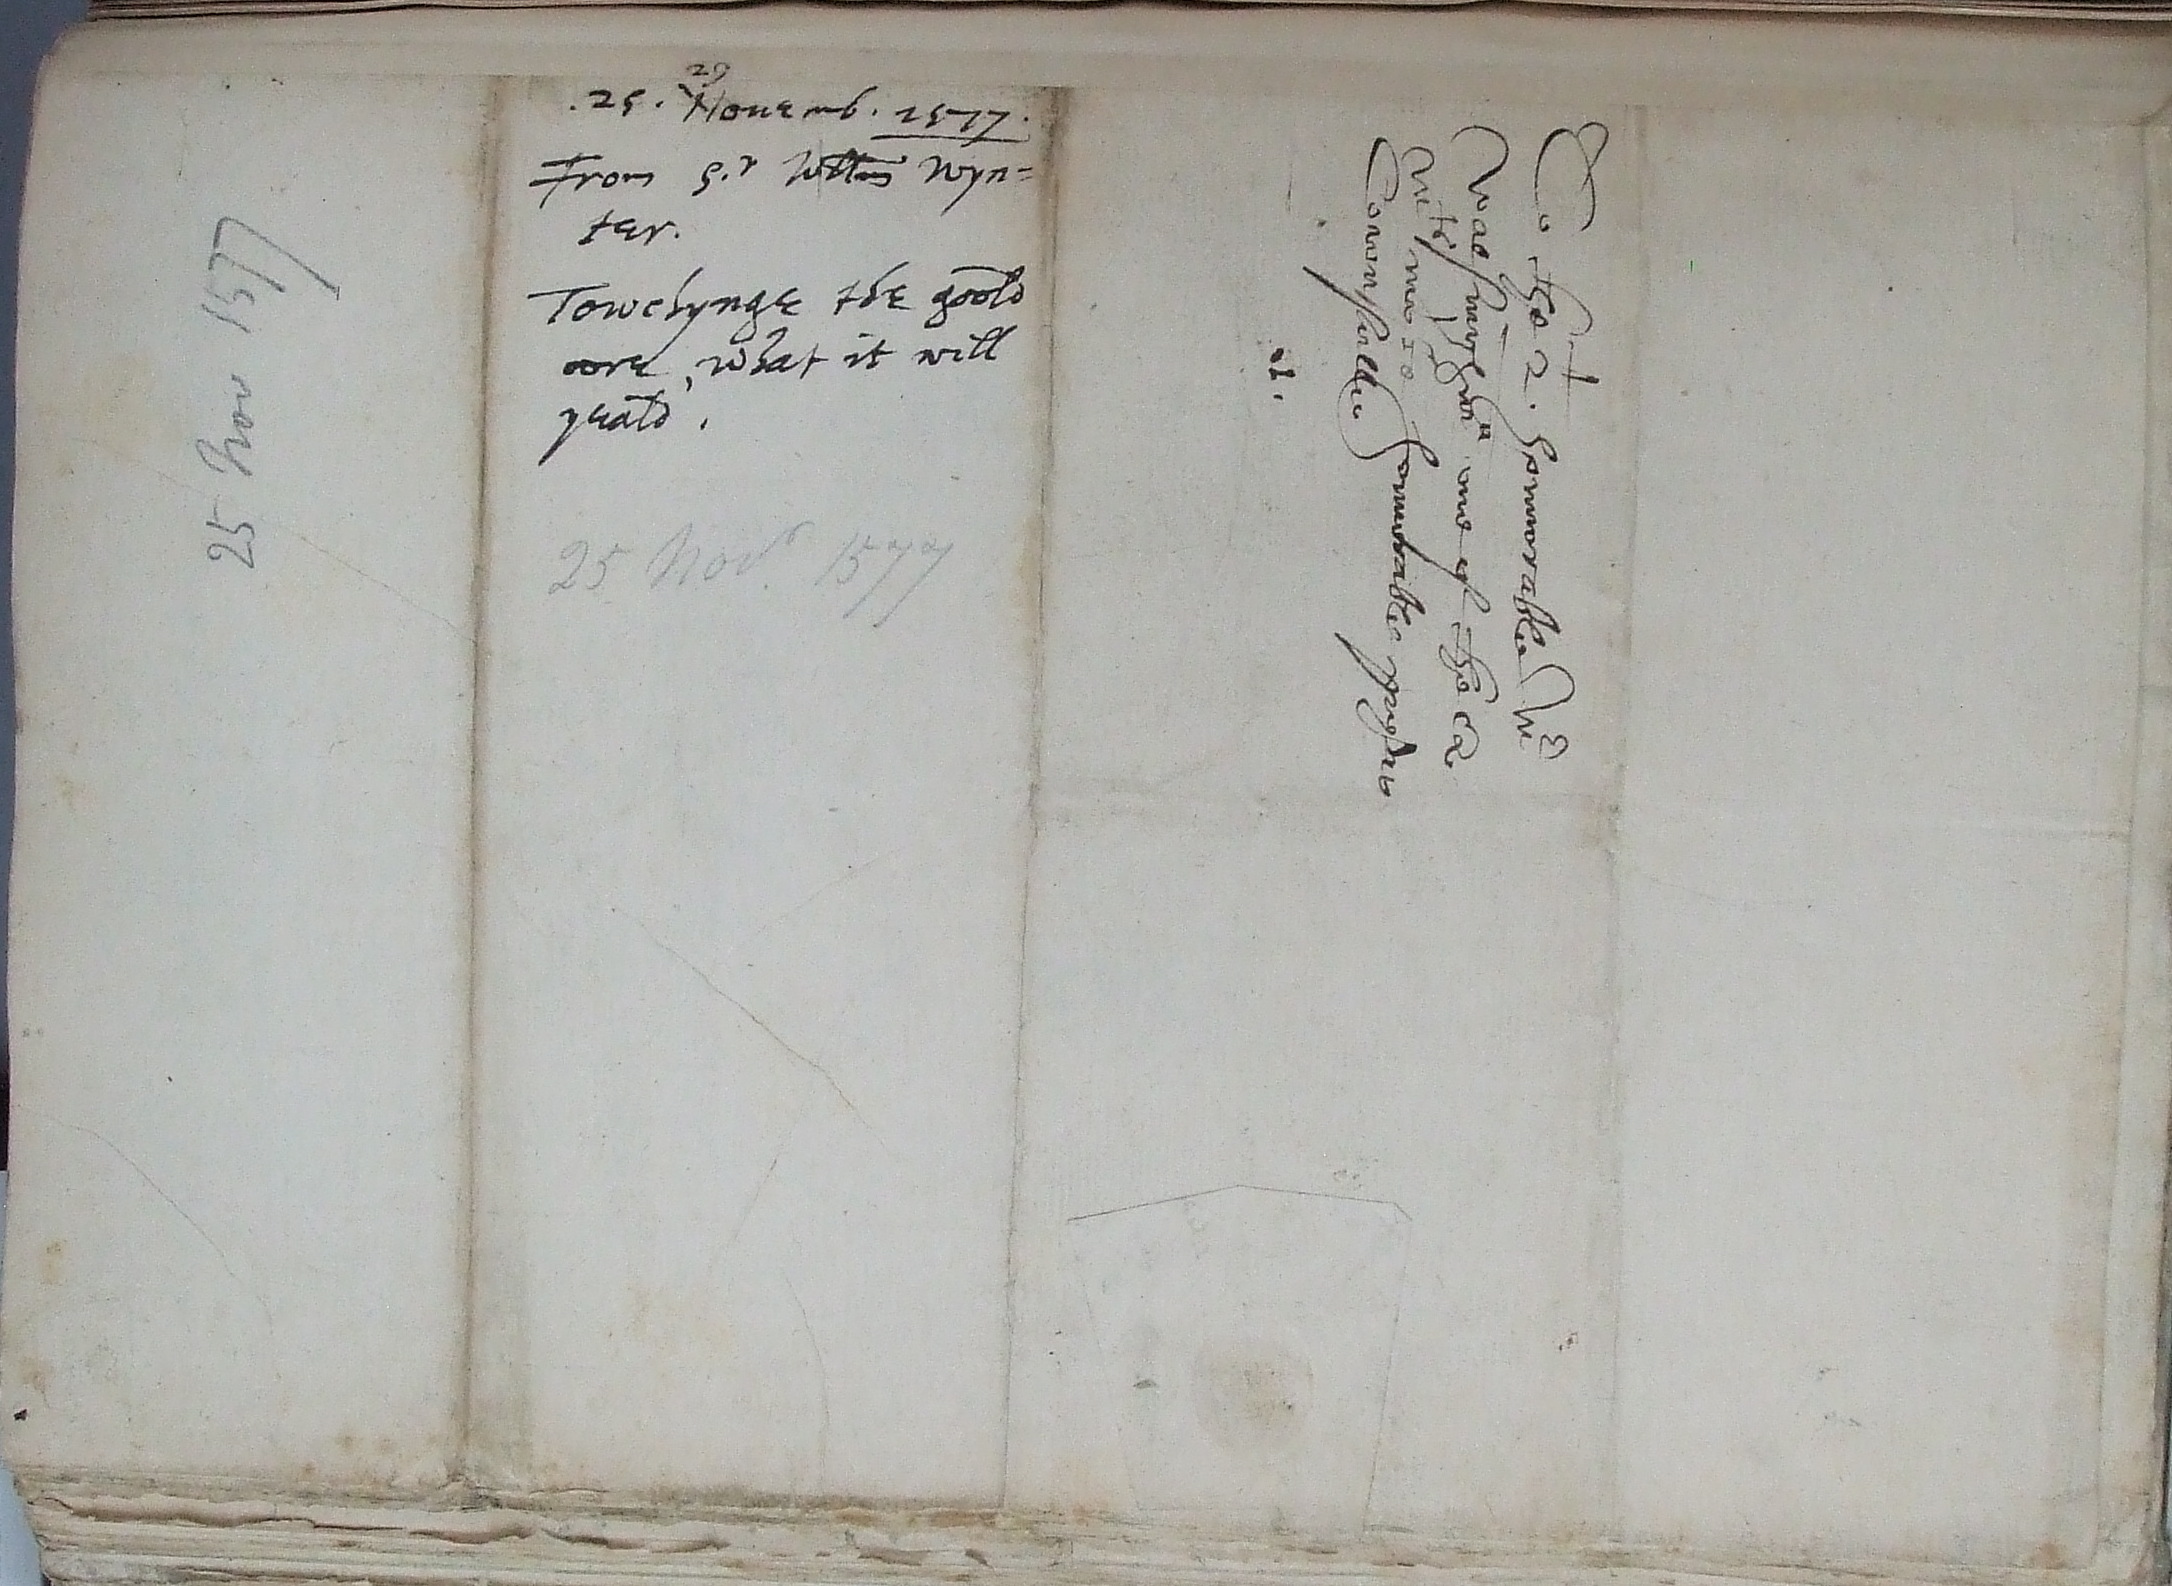 25 Nov 1577
29
.25. Nouemb. 1577.
From S.r Willm Wyn=
ter.
Towchynge the goold
oore, what it will
yeald.
25 Novr. 1577
To the R. honnorable Mr
Walsingham one of the Q.
honnorable pryvie
Counsulle